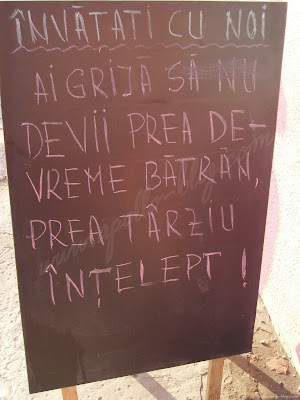 ÎNVĂȚATI CU NOI
AI GRIJĂ SĂ NU
DEVII PREA DE-
VREME BĂTRÂN,
PREA TÂRZIU
ÎNȚELEPT!